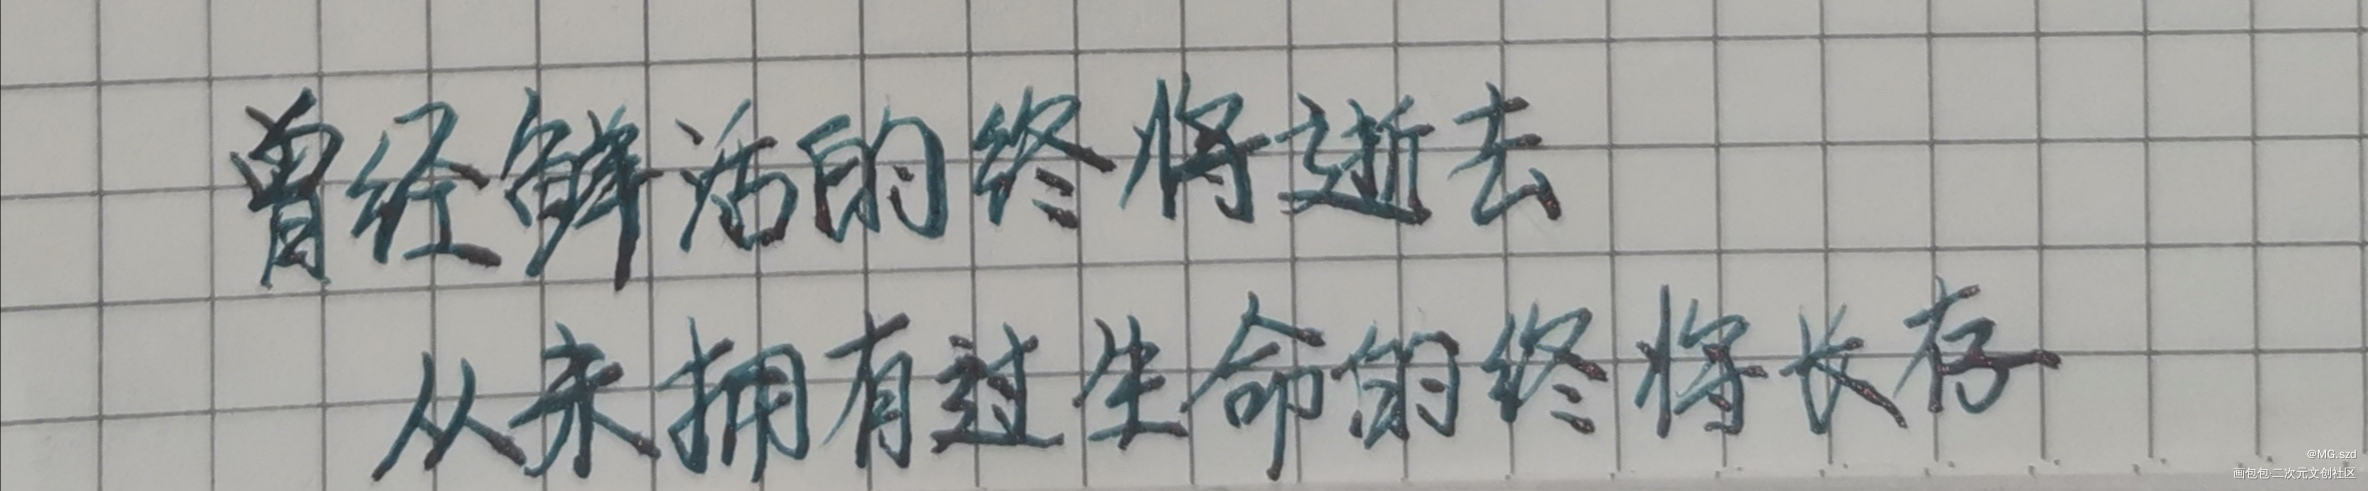 曾经鲜活的终将逝去
从未拥有过生命的终将长存
@MG.szd
画包包·二次元文创社区